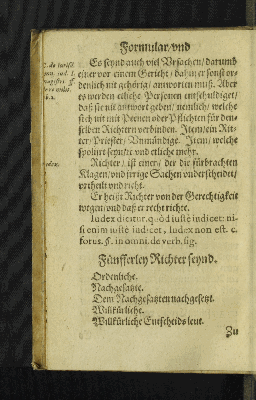 Formular/vnd
Es seynd auch viel Vrsachen/darumb
einer vor einem Gericht/dahin er sonst or-
denlich gehörig/antworten muß. Aber
es werden etliche Personen entschuldiget/
daß sie nit antwort geben/nemlich/welche
sich nit mit Peenen oder Pflichten für den-
selben Richtern verbinden. Item/ein Rit-
ter/Priester/Vnmündige. Item/welche
spoliirt seyn/vnd etliche mehr.
Richter/ist einer/der die fürbrachten
Klagen/vnd jrrige Sachen vnderscheidet/
vrtheilt vnd richt.
Er heißt Richter von der Gerechtigkeit
wegen/vnd daß er recht richte.
Iudex dicitur, quòd iustè iudicet: ni-
si enim iustè iudicet, Iudex non est. c.
forus. §. in omni. de verb. sig.
Fünfferley Richter seynd.
Ordenliche.
Nachgesatzte.
Dem Nachgesatzten nachgesetzt.
Willkürliche.
Willkürliche Entscheids leut.
Zu